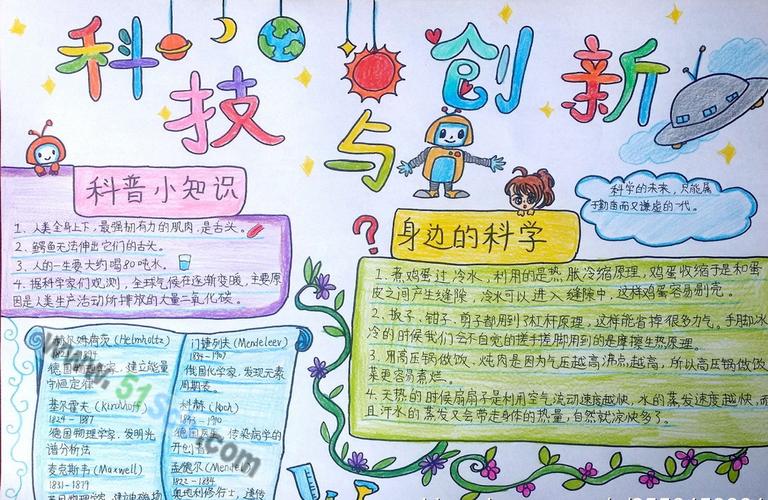 科技与创新
科普小知识
1、人类全身上下，最强韧有力的肌肉，是舌头。
2、鳄鱼无法伸出它们的舌头。
3、人的一生要大约喝80吨水。
4、据科学家们观测，全球气候在逐渐变暖，主要原
因是人类生产活动所排放的大量二氧化碳。
科学的未来，只能属
于勤奋而又谦虚的一代。
?
身边的科学
1、煮鸡蛋过冷水，利用的是热胀冷缩原理，鸡蛋收缩于是和蛋
皮之间产生缝隙，冷水可以进入缝隙中，这样鸡蛋容易剥壳。
2、扳子、钳子、剪子都用到了杠杆原理，这样能省掉很多力气。手脚冰
冷的时候我们会不自觉的搓手搓脚用到的是摩擦生热原理。
3、用高压锅做饭、炖肉是因为气压越高沸点越高，所以高压锅做饭
菜更容易煮烂。
4、天热的时候扇扇子是利用空气流动速度越快，水的蒸发速度越快，而
且汗水的蒸发又会带走身体的热量，自然就凉快多了。
赫尔姆荷茨(Helmholtz)
德国 建立能量
守恒定律
基尔霍夫(Kirchhoff)
1824-1887
德国物理学家，发明光
谱分析法
麦克斯韦(Maxwell)
1831-1879
门捷列夫(Mendeleev)
1834-1907
俄国化学家，发现元素
周期表。
科赫(Koch)
德国医 传染病学的
开创者
孟德尔(Mendel)
1822-1884
奥地利修行士，遗传